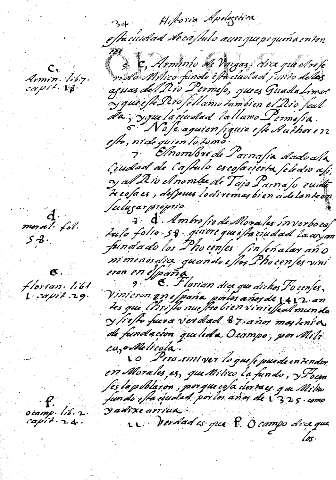 34 Historia Apologetica
esta ciudad de castulo aunque pequeña enton
C.
Armin. lib 7.
capit. 18.
5. C. Arminio de Vargas, dize que el refe
rido Milico fundo esta ciudad junto de las
aguas del Rio Permeso, que es Guadalimar
y que este Rio se llamo tambien el Rio
y que la ciudad la llamo Permesia.
6. No se a quien siguio este Author en
esto, ni de quien lo tomo.
7. El nombre de Parnasia dado a la
Ciudad de Castulo es cosa cierta
y al Rio el nombre de Parnaso
despues lo diremos bien adelante en
su lugar proprio.
d.
moral. fol.
58.
8. d. Ambrosio de Morales in verbo cas
tulo folio. 58. quiere que esta ciudad la ayan
fundado los Phocenses sin señalar año
ni mencion de quando estos Phocenses vini
eron en españa.
e.
florian. lib 1
capit. 29.
9. e. Florian dize que dichos Focenses,
vinieron en españa por los años de 1412. an
tes que Cristo nuestro bien viniese al mundo
y si esto fuera verdad 87. años mas tenia
de fundacion que le da Ocampo, por Mili
co, o Melicola.
10. Para mi ver lo que se puede entender
en Morales, es, que Milico la fundo, y Focen
ses la poblaron, porque es cosa cierta es que Milico
fundo esta ciudad, por los años de 1325. como
ya dixe arriva.
f.
ocamp. lib. 2.
capit. 24.
11. Verdad es que f. Ocampo dize que
los